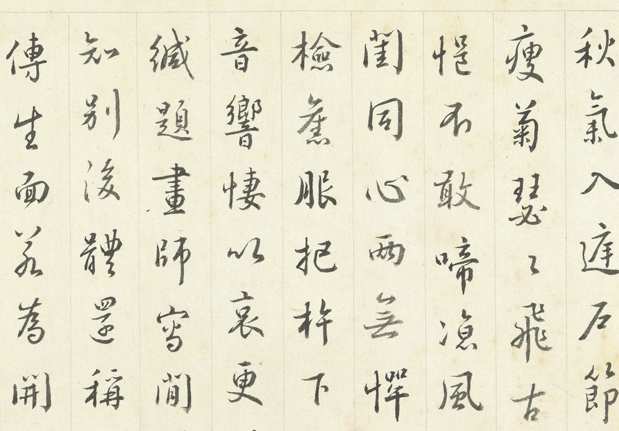 秋氣入庭石節
瘦菊瑟々飛古
悒不敢啼涼風
閨同心兩無憚
檢舊服把杵下
音響悽以哀更
緘題畫師寫閒
知別後體還稱
傳生面若為開